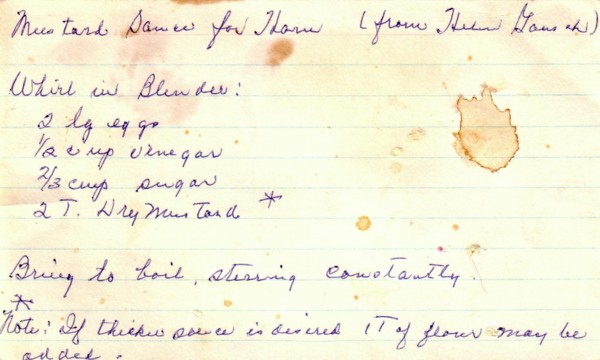 Mustard Sauce for Ham (from Helen
Whirl in Blender:
2 lg eggs
1/2 cup vinegar
2/3 cup sugar
2 T. Dry Mustard *
Bring to boil, stirring constantly.
*
Note: If thicker sauce is desired 1T of flour may be
added.